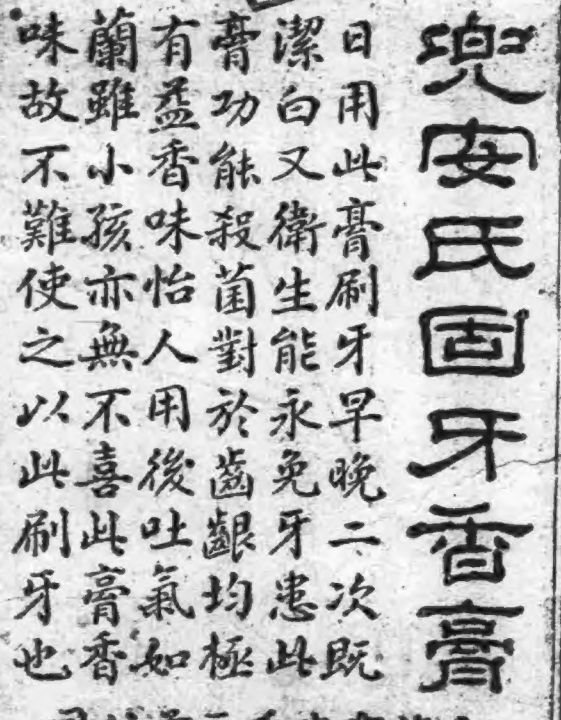 兜安氏固牙香膏
日用此膏刷牙早晚二次既
潔白又衛生能永免牙患此
膏功能殺菌對於齒齦均極
有益香味怡人用後吐氣如
蘭雖小孩亦無不喜此膏香
味故不難使之以此刷牙也